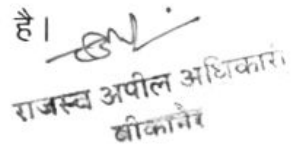 है।
राजस्व अपील अधिकारी
बीकानेर